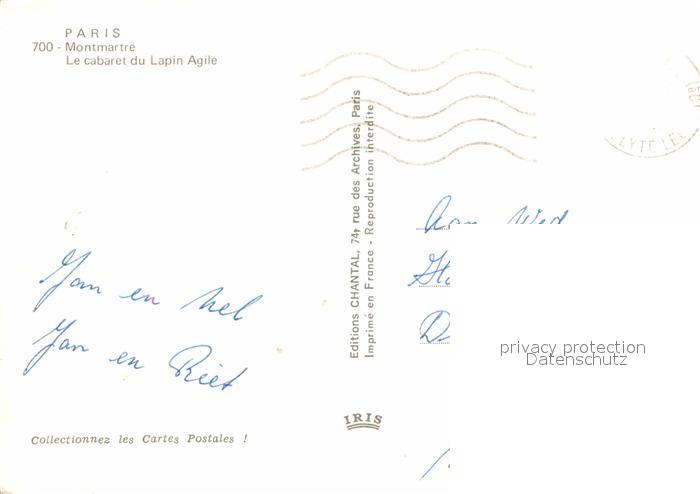 PARIS
700 - Montmartre
Le cabaret du Lapin Agile
Jan en Nel
Jan en Riet
Collectionnez les Cartes Postales !
Editions CHANTAL, 74, rue des Archives, Paris
Imprimé en France - Reproduction interdite
IRIS
privacy protection
Datenschutz